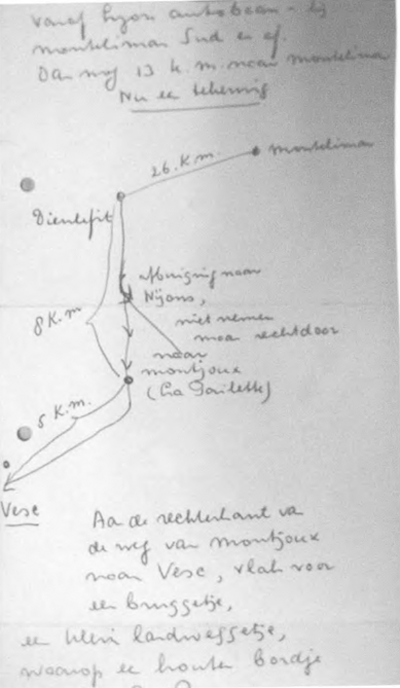 vanaf Lyon autobaan - bij
montelimar Sud er af.
Dan nog 13 k.m. naar montelimar
Nu een tekening
26. K.m.
montelimar
Dieulefit
afbuiging naar
Nijons,
niet nemen
maar rechtdoor
8 K.m
naar
montjoux
(La Paillette)
5 K.m.
Vesc
Aa de rechterkant va
de weg van montjoux
naar Vesc, vlak voor
een bruggetje,
een klein landweggetje,
waarop ee houten bordje